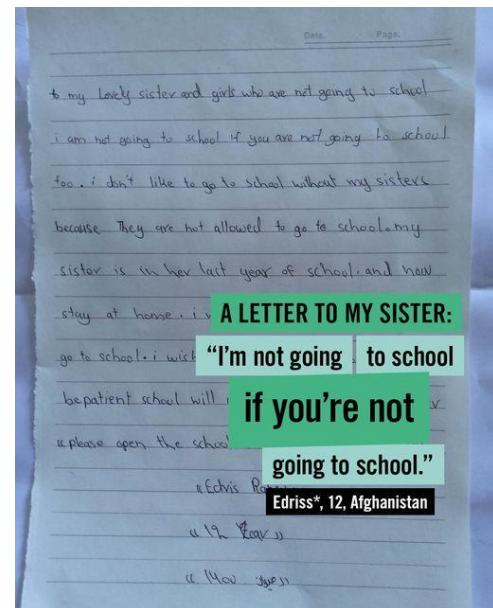 Date. Page.
to my Lovely sister and girls who are not going to school
i am not going to school if you are not going to school
too. i don't like to go to school without my sisters
because They are not allowed to go to school. my
sister is in her last year of school. and now
stay at home. i
go to school. i wish
be patient school will
"please open the school
A LETTER TO MY SISTER:
“I’m not going to school
if you’re not
going to school.”
Edriss*, 12, Afghanistan
«Edris
«12 Year»